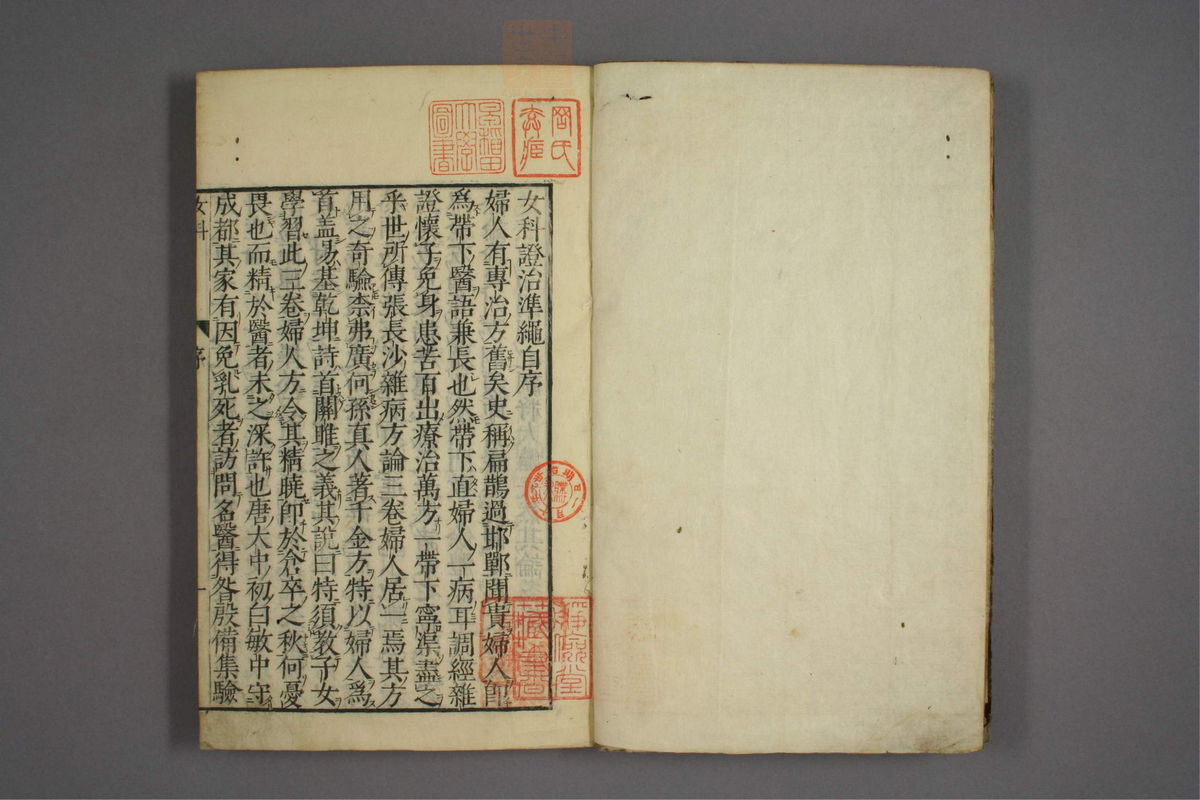 女科證治準繩自序
婦人有專治方舊矣史稱扁鵲過邯鄲聞貴婦人即
爲帶下醫語兼長也然帶下直婦人一病耳調經雜
證懷子免身患苦百出療治萬方一帶下寧渠盡之
乎世所傳張長沙雜病方論三卷婦人居一焉其方
用之奇驗柰弗廣何孫真人著千金方特以婦人爲
首盖易基乾坤詩首關雎之義其說曰特須教子女
學習此三卷婦人方令其精曉即於倉卒之秋何憂
畏也而精於醫者未之深許也唐大中初白敏中守
成都其家有因免乳死者訪問名醫得昝殷備集驗
女科
序
一
早稻田
大學
圖書
靜儉堂
藏書